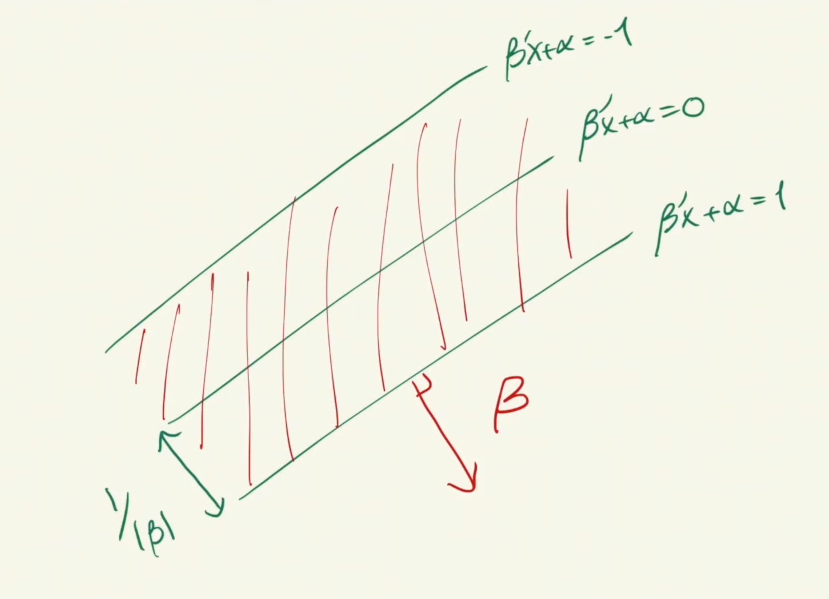 β'x+α=-1
β'x+α=0
β'x+α=1
β
1/|β|